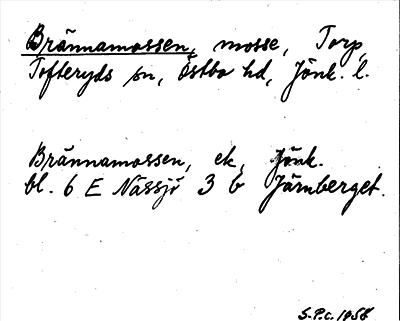 Brännamossen, mosse, Torp,
Tofteryds sn, Östbo hd, Jönk. l.
Brännamossen, ek, Jönk.
bl. 6 E Nässjö 3 b Järnberget.
S.P.C. 1958